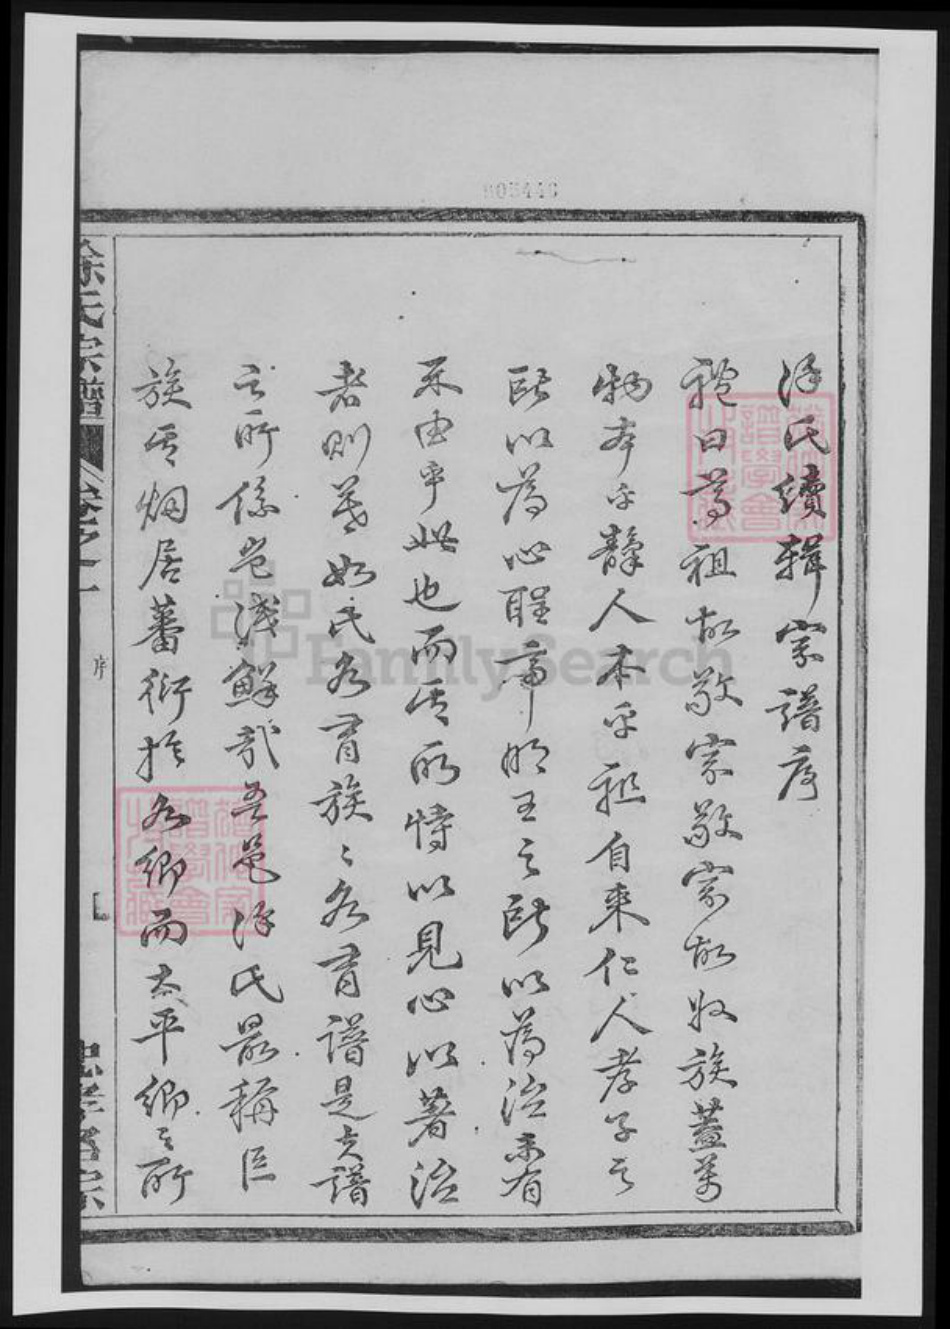 005440
徐氏續輯宗譜序
禮曰尊祖故敬宗敬宗故收族蓋萬
物本乎天人本乎祖自來仁人孝子之
所以為心聖帝明王之所以為治未有
不由乎此也而其所恃以見心以著治
者則莫如氏各有族〻各有譜是夫譜
之所係豈淺鮮哉吾邑徐氏最稱巨
族其烟居蕃衍於各鄉而太平鄉之所
徐氏宗譜
卷之一
序
FamilySearch